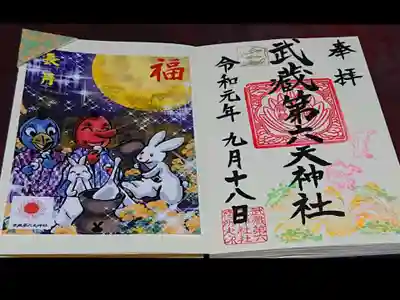 奉拝
武蔵第六天神社
令和元年 九月十八日
福
長月